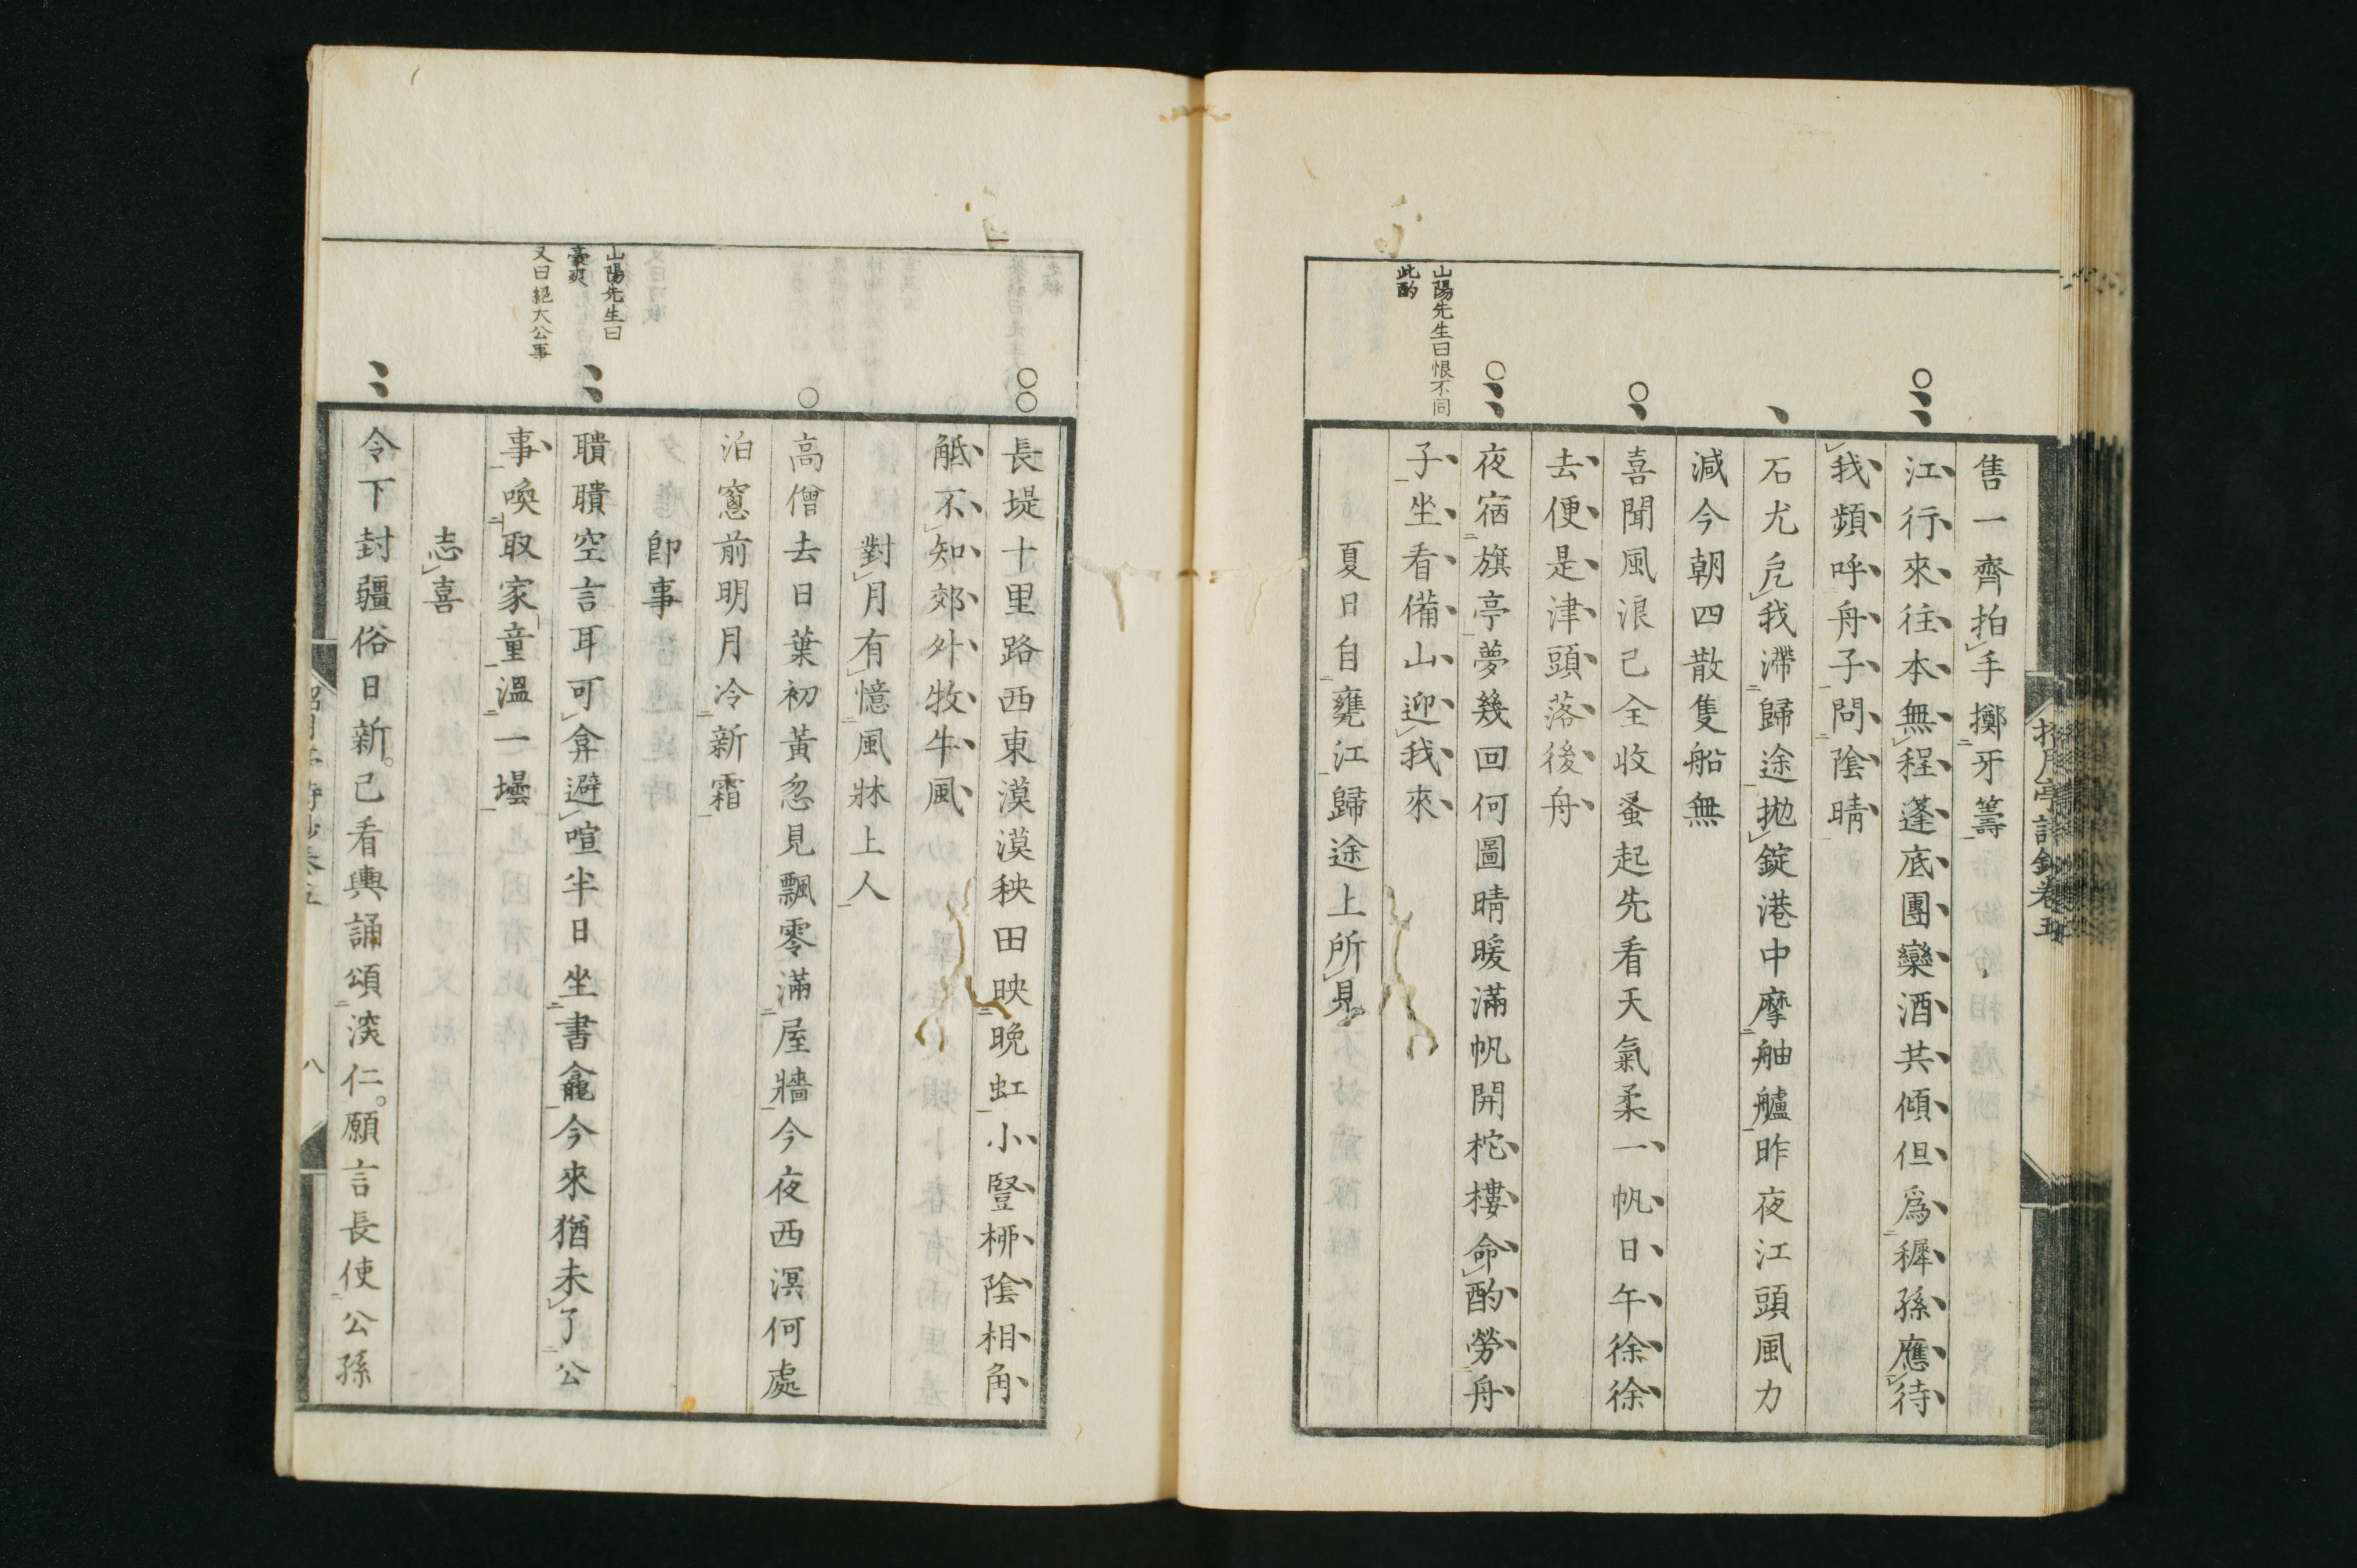 售一齊拍手擲牙籌
江行來往本無程蓬底團欒酒共傾但爲穉孫應待
我頻呼舟子問陰晴
石尤戹我滯歸途拋錠港中摩舳艫昨夜江頭風力
減今朝四散隻船無
喜聞風浪已全收蚤起先看天氣柔一帆日午徐徐
去便是津頭落後舟
山陽先生曰恨不同
此酌
夜宿旗亭夢幾回何圖晴暖滿帆開柁樓命酌勞舟
子坐看備山迎我來
夏日自甕江歸途上所見
長堤十里路西東漠漠秧田映晚虹小豎柳陰相角
觝不知郊外牧牛風
對月有憶風牀上人
高僧去日葉初黃忽見飄零滿屋牆今夜西溟何處
泊窻前明月冷新霜
卽事
山陽先生曰
豪爽
又曰絕大公事
聵聵空言耳可弇避喧半日坐書龕今來猶未了公
事喚取家童溫一壜
志喜
令下封疆俗日新。已看輿誦頌深仁。願言長使公孫
八